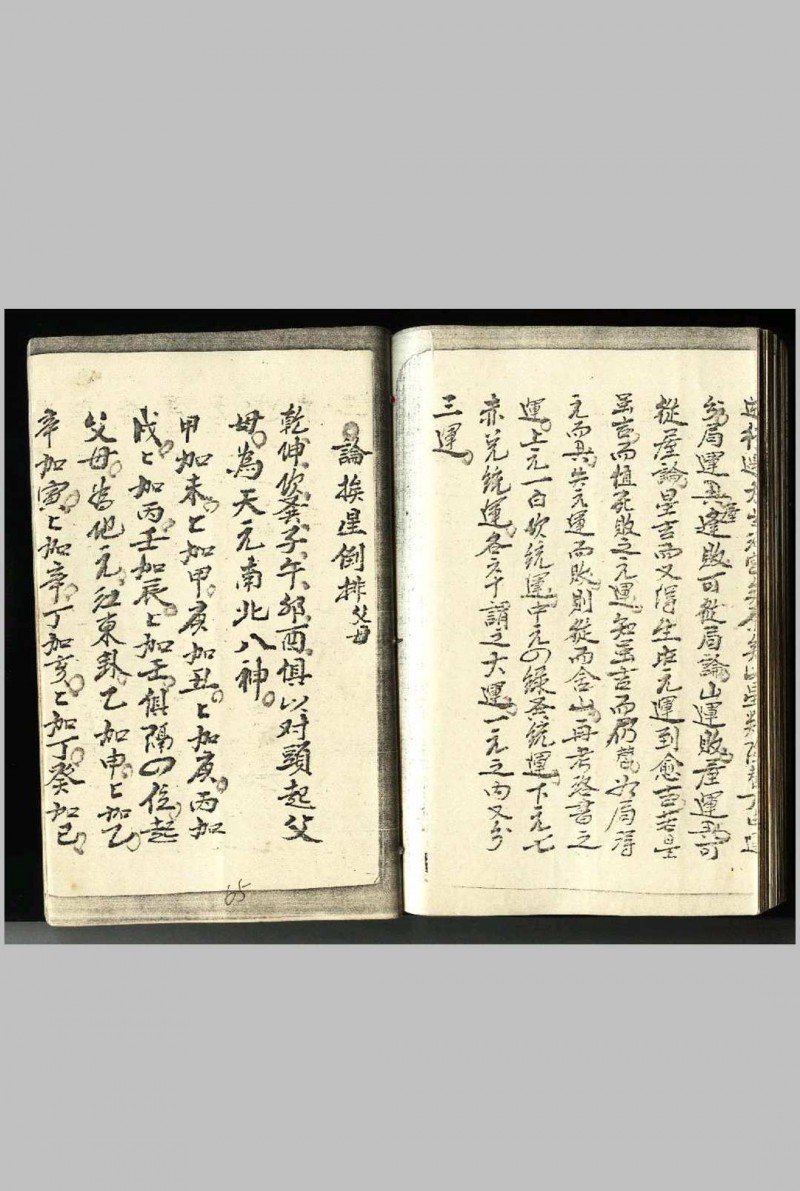 分局運與逢敗可從局論山運敗屋運與可
從屋論星吉而又得生旺元運到愈吉若星
虽吉而值死敗之元運知虽吉而仍替如局得
元而具失元運而敗則從而舍山再考洛書之
運上元一白坎統運中元の綠巽統運下元七
赤兌統運各六十謂之大運一元之內又分
三運
論挨星倒排父母
乾伸坎巽子午卯酉俱以对頭起父
母為天元南北八神
甲加未ヒ加甲庚加丑ヒ加庚丙加
戌ヒ加丙壬加辰ヒ加壬俱隔の位起
父母為地元江東卦乙加申ヒ加乙
辛加寅ヒ加辛丁加亥ヒ加丁癸加巳
65